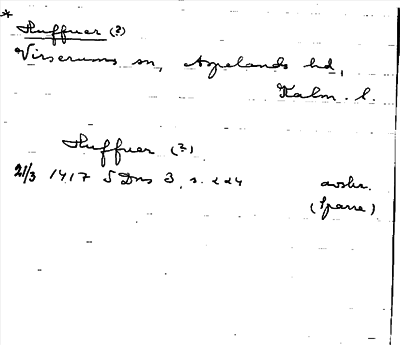 * Huffuer (?)
Virserums sn, Aspelands hd,
Kalm. l.
Huffuer (?)
21/3 1417 SDns 3, s. 224 avskr.
(Sparre)